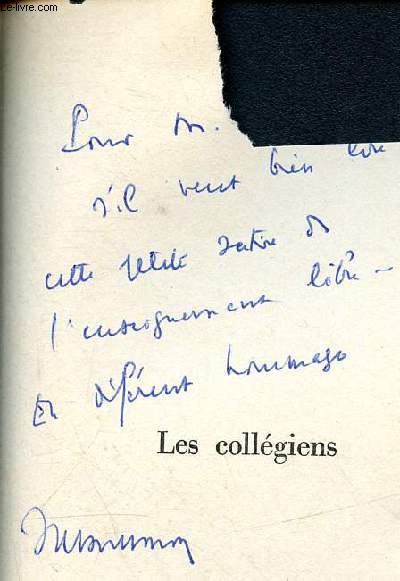 Le-livre.com
Pour M.
s'il veut bien lire
cette petite satire de
l'enseignement libre -
En déférent hommage
Les collégiens